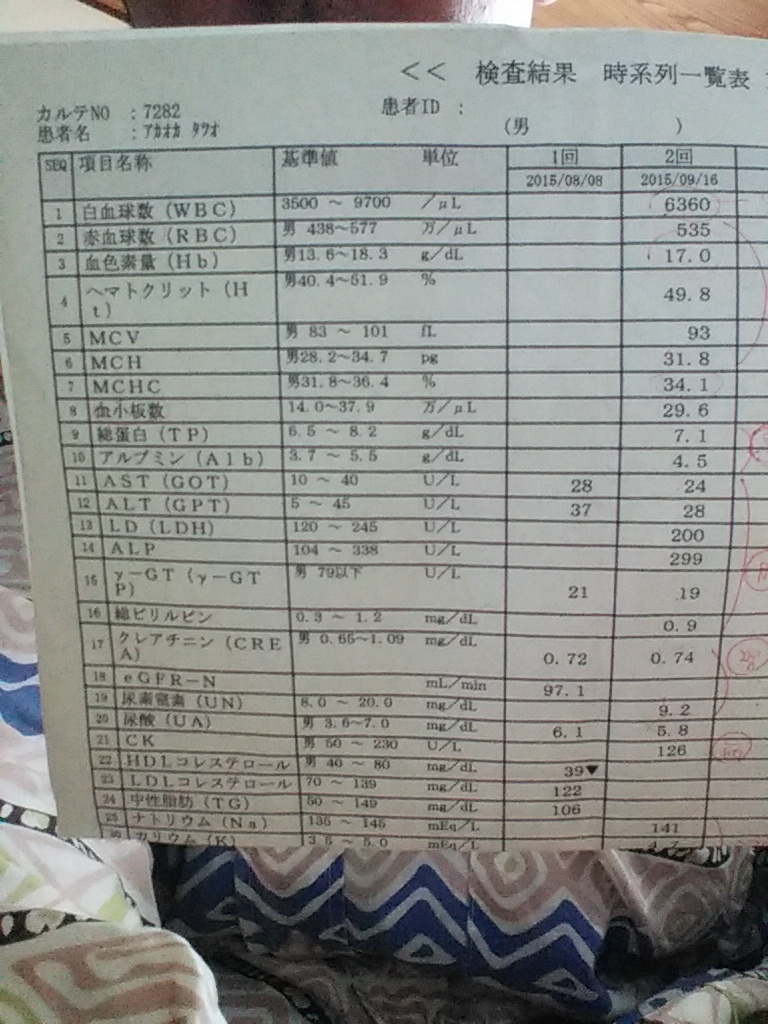 << 検査結果 時系列一覧表
カルテNO :7282 患者ID :
患者名 :アカオカ タツオ (男 )
SEQ 項目名称 基準値 単位 1回 2回
2015/08/08 2015/09/16
1 白血球数(WBC) 3500 ~ 9700 /μL 6360
2 赤血球数(RBC) 男 438~577 万/μL 535
3 血色素量(Hb) 男13.6~18.3 g/dL 17.0
4 ヘマトクリット(Ht) 男40.4~51.9 % 49.8
5 MCV 男 83 ~ 101 fL 93
6 MCH 男28.2~34.7 pg 31.8
7 MCHC 男31.8~36.4 % 34.1
8 血小板数 14.0~37.9 万/μL 29.6
9 総蛋白(TP) 6.5 ~ 8.2 g/dL 7.1
10 アルブミン(Alb) 3.7 ~ 5.5 g/dL 4.5
11 AST(GOT) 10 ~ 40 U/L 28 24
12 ALT(GPT) 5 ~ 45 U/L 37 28
13 LD(LDH) 120 ~ 245 U/L 200
14 ALP 104 ~ 338 U/L 299
15 γ-GT(γ-GTP) 男 79以下 U/L 21 19
16 総ビリルビン 0.3 ~ 1.2 mg/dL 0.9
17 クレアチニン(CREA) 男 0.65~1.09 mg/dL 0.72 0.74
18 eGFR-N mL/min 97.1
19 尿素窒素(UN) 8.0 ~ 20.0 mg/dL 9.2
20 尿酸(UA) 男 3.6~7.0 mg/dL 6.1 5.8
21 CK 男 50 ~ 230 U/L 126
22 HDLコレステロール 男 40 ~ 80 mg/dL 39▼
23 LDLコレステロール 70 ~ 139 mg/dL 122
24 中性脂肪(TG) 50 ~ 149 mg/dL 106
25 ナトリウム(Na) 135 ~ 145 mEq/L 141
カリウム(K) 3.5 ~ 5.0 mEq/L